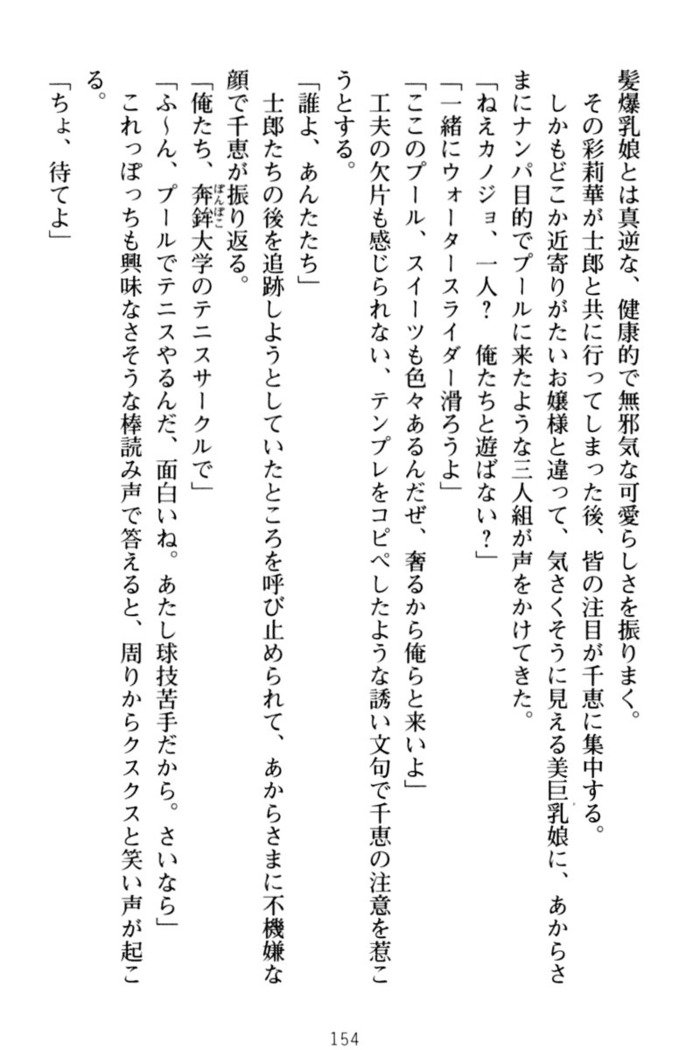 髪爆乳娘とは真逆な、健康的で無邪気な可愛らしさを振りまく。
　その彩莉華が士郎と共に行ってしまった後、皆の注目が千恵に集中する。
　しかもどこか近寄りがたいお嬢様と違って、気さくそうに見える美巨乳娘に、あからさ
まにナンパ目的でプールに来たような三人組が声をかけてきた。
「ねえカノジョ、一人？　俺たちと遊ばない？」
「一緒にウォータースライダー滑ろうよ」
「ここのプール、スイーツも色々あるんだぜ、奢るから俺らと来いよ」
　工夫の欠片も感じられない、テンプレをコピペしたような誘い文句で千恵の注意を惹こ
うとする。
「誰よ、あんたたち」
　士郎たちの後を追跡しようとしていたところを呼び止められて、あからさまに不機嫌な
顔で千恵が振り返る。
「俺たち、奔鉾大学のテニスサークルで」
ぽんぽこ
「ふ～ん、プールでテニスやるんだ、面白いね。あたし球技苦手だから。さいなら」
　これっぽっちも興味なさそうな棒読み声で答えると、周りからクスクスと笑い声が起こ
る。
「ちょ、待てよ」
154